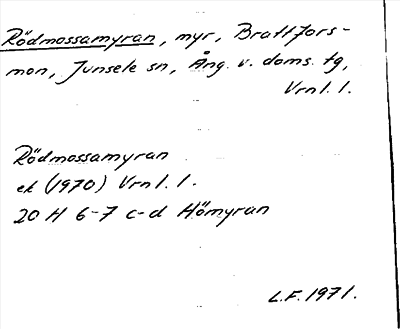 Rödmossamyran, myr, Brattfors-
mon, Junsele sn, Ång. v. doms. tg,
Vrnl. l.
Rödmossamyran
ek (1970) Vrnl. l.
20 H 6-7 c-d Hömyran
L.F. 1971.